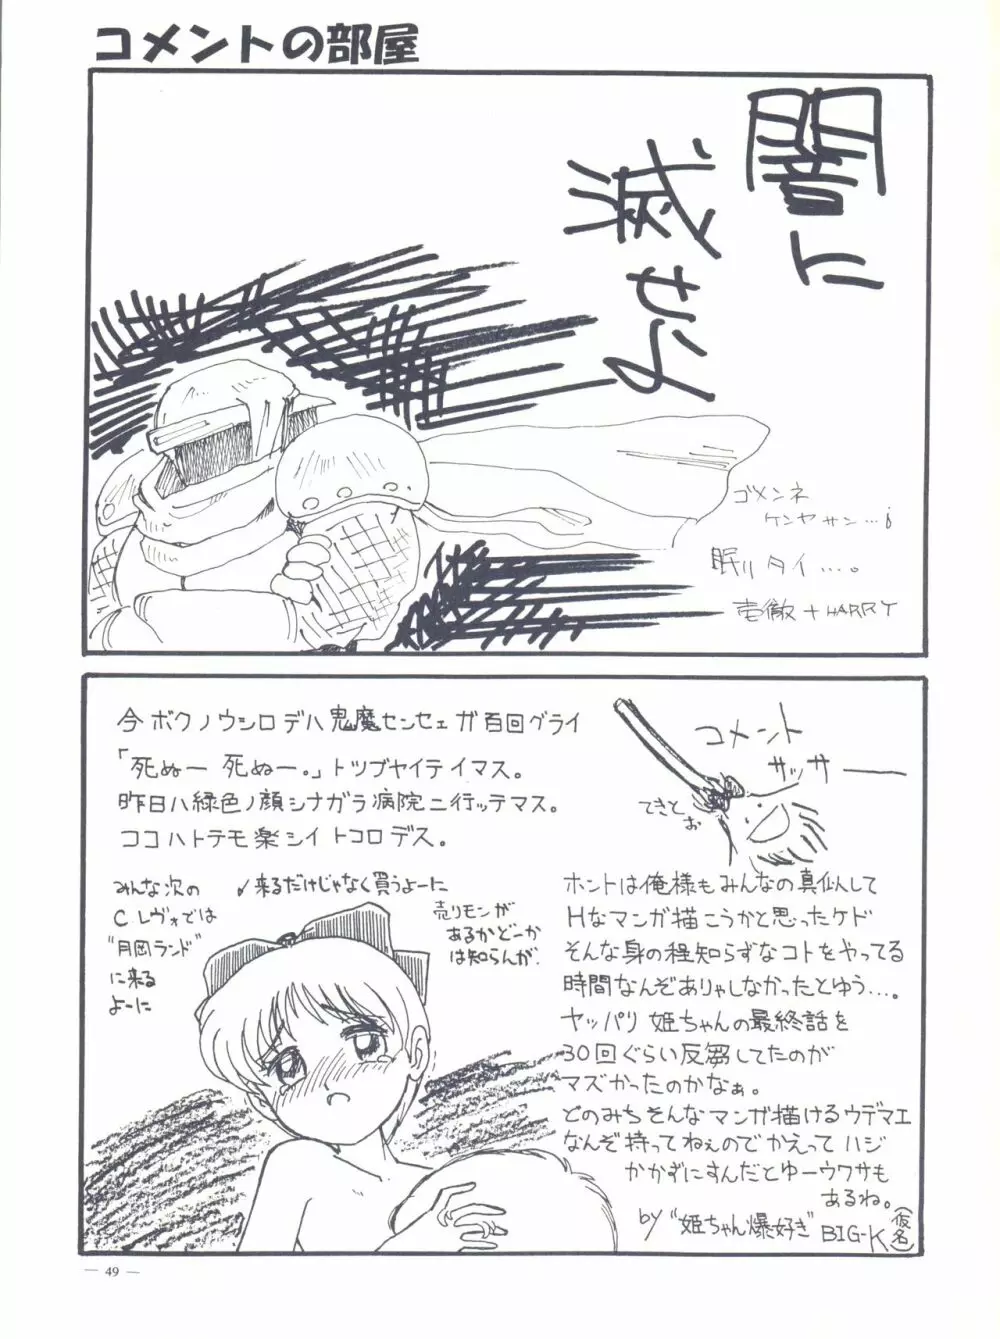 コメントの部屋
闇に
滅せよ
ゴメンネ
ケンヤサン…。
眠リタイ…。
壱徹+HARRY
今ボクノウシロデハ鬼魔センセェガ百回グライ
「死ぬー 死ぬー。」トツブヤイテイマス。
昨日ハ緑色ノ顔シナガラ病院ニ行ッテマス。
ココハトテモ楽シイトコロデス。
コメント
サッサー
てきとお
みんな次の
Cレヴォでは
"月岡ランド"
に来る
よーに
✓来るだけじゃなく買うよーに
売リモンが
あるかどーか
は知らんが.
ホントは俺様もみんなの真似して
Hなマンガ描こうかと思ったケド
そんな身の程知らずなコトをやってる
時間なんぞありゃしなかったとゆう…。
ヤッパリ姫ちゃんの最終話を
30回ぐらい反芻してたのが
マズかったのかなぁ。
どのみちそんなマンガ描けるウデマエ
なんぞ持ってねぇのでかえってハジ
かかずにすんだとゆーウワサも
あるね。
by "姫ちゃん爆好き" BIG-K(仮名)
— 49 —